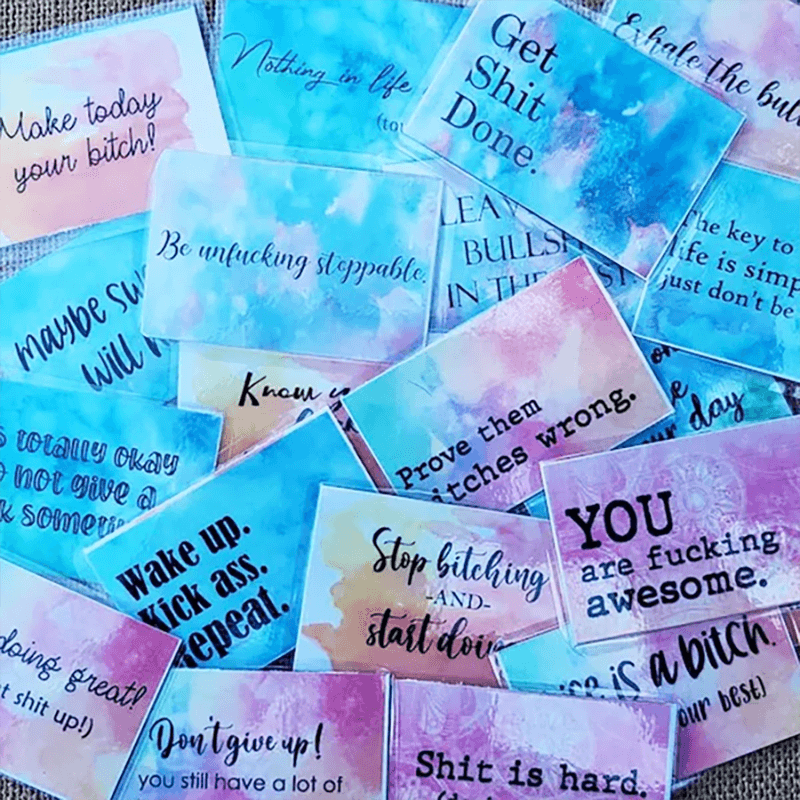 Make today
your bitch!
Nothing in life
Get
Shit
Done.
Exhale the
Be unfucking stoppable.
IN THE
The key to
life is
just don't be
maybe
will
Know
Prove them
wrong.
day
totally okay
not give a
Wake up.
Kick ass.
Repeat.
Stop bitching
-AND-
start
YOU
are fucking
awesome.
doing great!
shit up!)
is a bitch.
our best)
Don't give up!
you still have a lot of
Shit is hard.